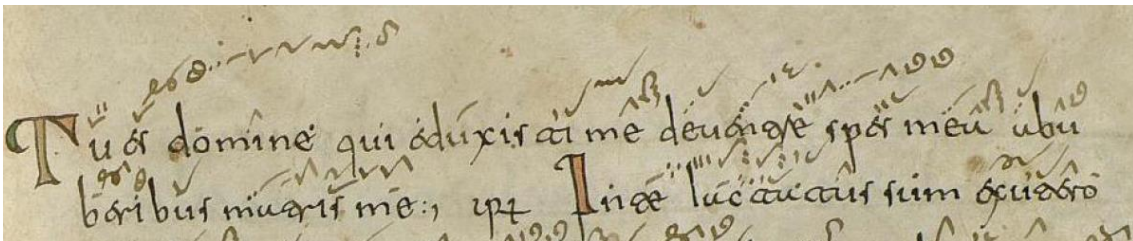 Tu es domine qui eduxisti me de uentre spes mea ab u
beribus matris me In te iactatus sum ex utero